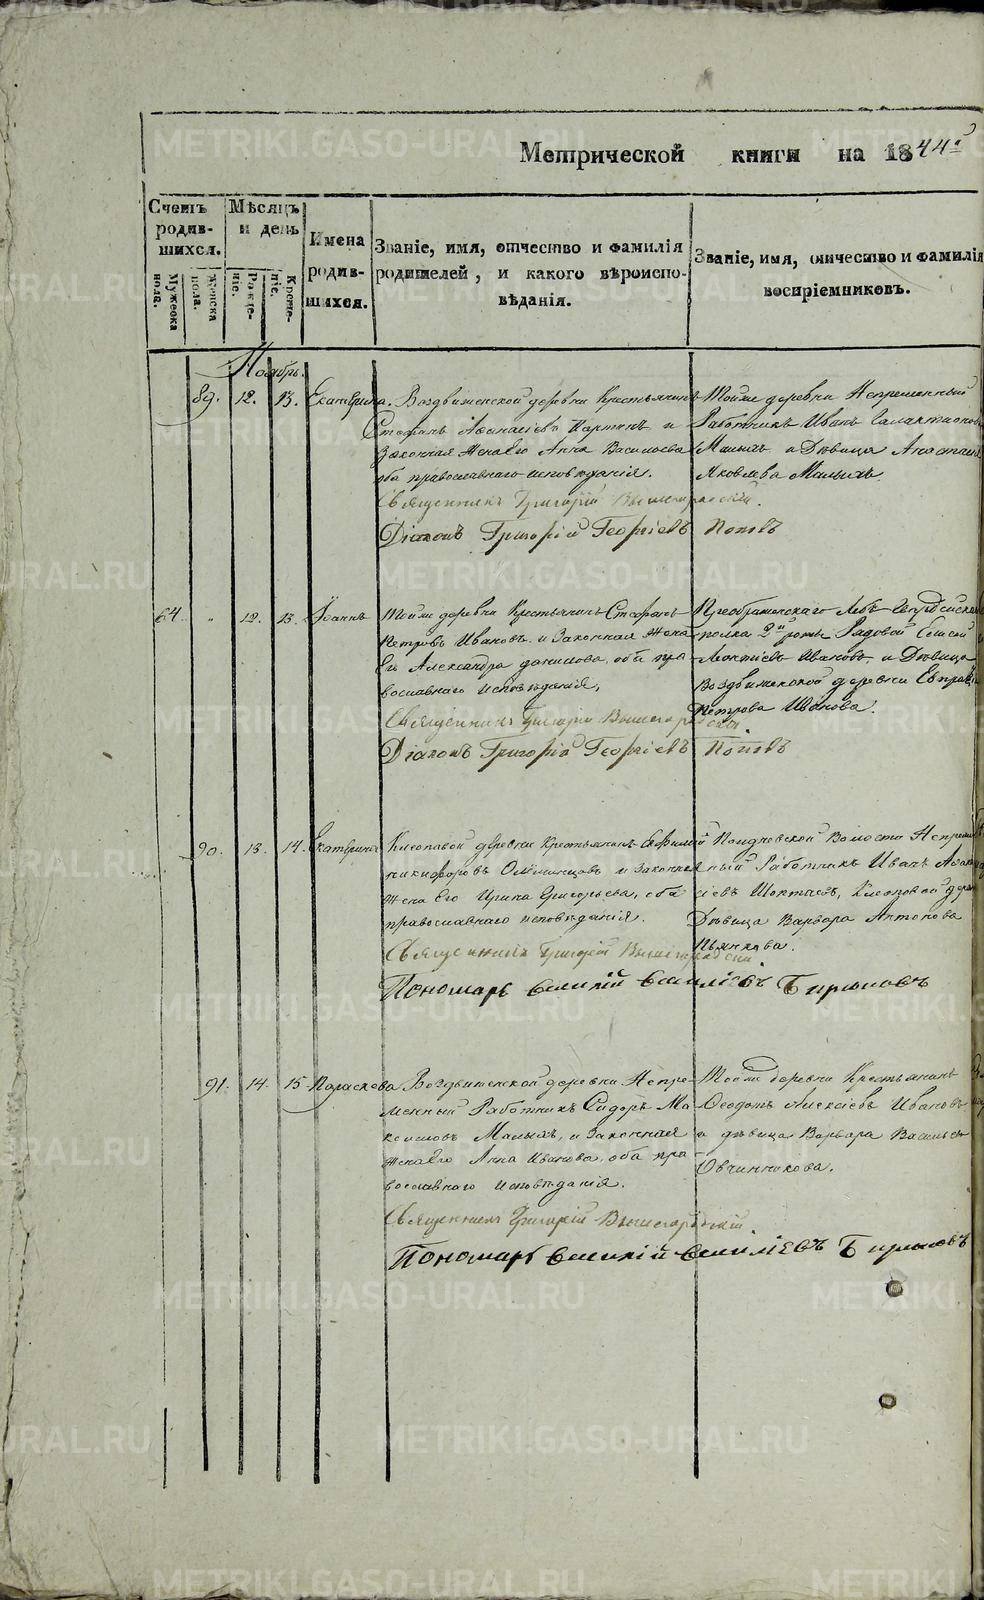 Метрической книги на 1844й
Счетъ родив- шихся.
Мѣсяцъ и день
Имена родив- шихся.
Званіе, имя, отчество и фамилія родителей, и какого вѣроиспо- вѣданія.
Званіе, имя, отчество и фамилія воспріемниковъ.
Мужеска пола.
Женска пола.
Рожде- ніе.
Креще- ніе.
Ноябрь.
89. 12. 13. Екатерина.
Воздвиженской деревни Крестьянинъ
Стефанъ Афанасіевъ и
Законная Жена Его Анна Василіева
оба православнаго исповѣданія.
Тойже деревни Непременный
Работникъ Иванъ Галактіоновъ
Малыхъ и Дѣвица Анастасія
Яковлева Малыхъ.
Священникъ Григорій Вышегородскій.
Діаконъ Григорій Георгіевъ Поповъ
64. " 12. 13. Іоаннъ
Тойже деревни Крестьянинъ Стефанъ
Петровъ Ивановъ и Законная Жена
Его Александра Данилова, оба пра-
вославнаго исповѣданія,
Преображенскаго Лейбъ Гвардейскаго
полка 2й роты Рядовой Елисей
Леонтіевъ Ивановъ и Дѣвица
Воздвиженской деревни
Петрова Иванова.
Священникъ Григорій Вышегородскій.
Діаконъ Григорій Георгіевъ Поповъ
90. 13. 14. Екатерина
деревни Крестьянинъ Ефимій
Никифоровъ и Законная
Жена Его Ирина Григорьева, оба
православнаго исповѣданія.
Волости Непремен-
ный Работникъ Иванъ
деревни
Дѣвица Варвара Антонова
Пьянкова.
Священникъ Григорій Вышегородскій.
Пономарь Василій Василіевъ Бирюковъ
91. 14. 15. Параскева
Воздвиженской деревни Непре-
менный Работникъ Сидоръ Ма-
ксимовъ Малыхъ, и Законная
Жена Его Анна Иванова, оба пра-
вославнаго исповѣданія.
Тойже деревни Крестьянинъ
Феодотъ Алексіевъ Ивановъ
и дѣвица Варвара Васильева
Овчинникова.
Священникъ Григорій Вышегородскій.
Пономарь Василій Василіевъ Бирюковъ
METRIKI.GASO-URAL.RU